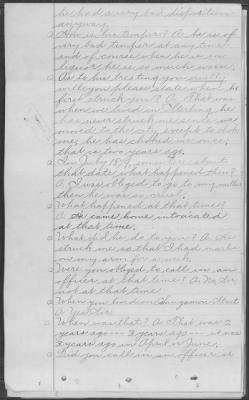 he had a very bad disposition
anyway.
Q How is his temper? A. he is of
very bad temper at any time
and of course when he is in
liquor he is so much worse.
Q As to his treating you
will you please state when he
first struck you? A. That was
when we lived in he
has never struck me since we
moved to the city, except to choke
me; he has choked me once;
that is two years ago.
Q In July 1879, some time about
that date what happened then?
A. I was obliged to go to my mother
then he was so cruel.
Q What happened at that time?
A. He came home intoxicated
at that time.
Q What did he do to you? A. He
struck me so that I had marks
on my arm for a week.
Q Were you obliged to call in an
officer at that time? A. No Sir
not at that time.
Q When you lived on Sangamon Street
A. Yes Sir
Q When was that? A. That was 2
years ago — 3 years ago — it was
3 years ago in April or June.
Q Did you call in an officer at